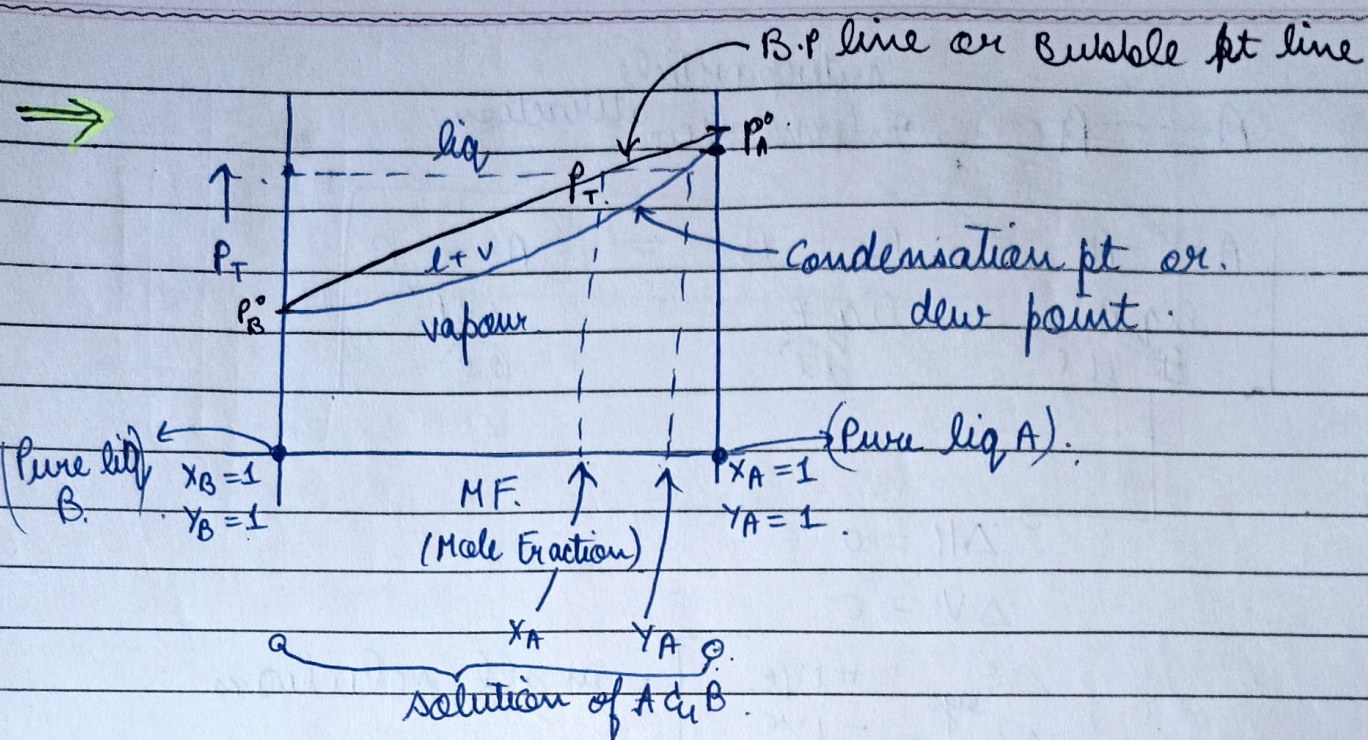 B.P line or Bubble pt line
liq
P°A
PT
PT
l + v
Condensation pt or
dew point.
P°B
vapour
(Pure liq A).
(Pure liq B.)
XB = 1
YB = 1
MF.
(Mole Fraction)
XA = 1
YA = 1
XA
YA
solution of A & B